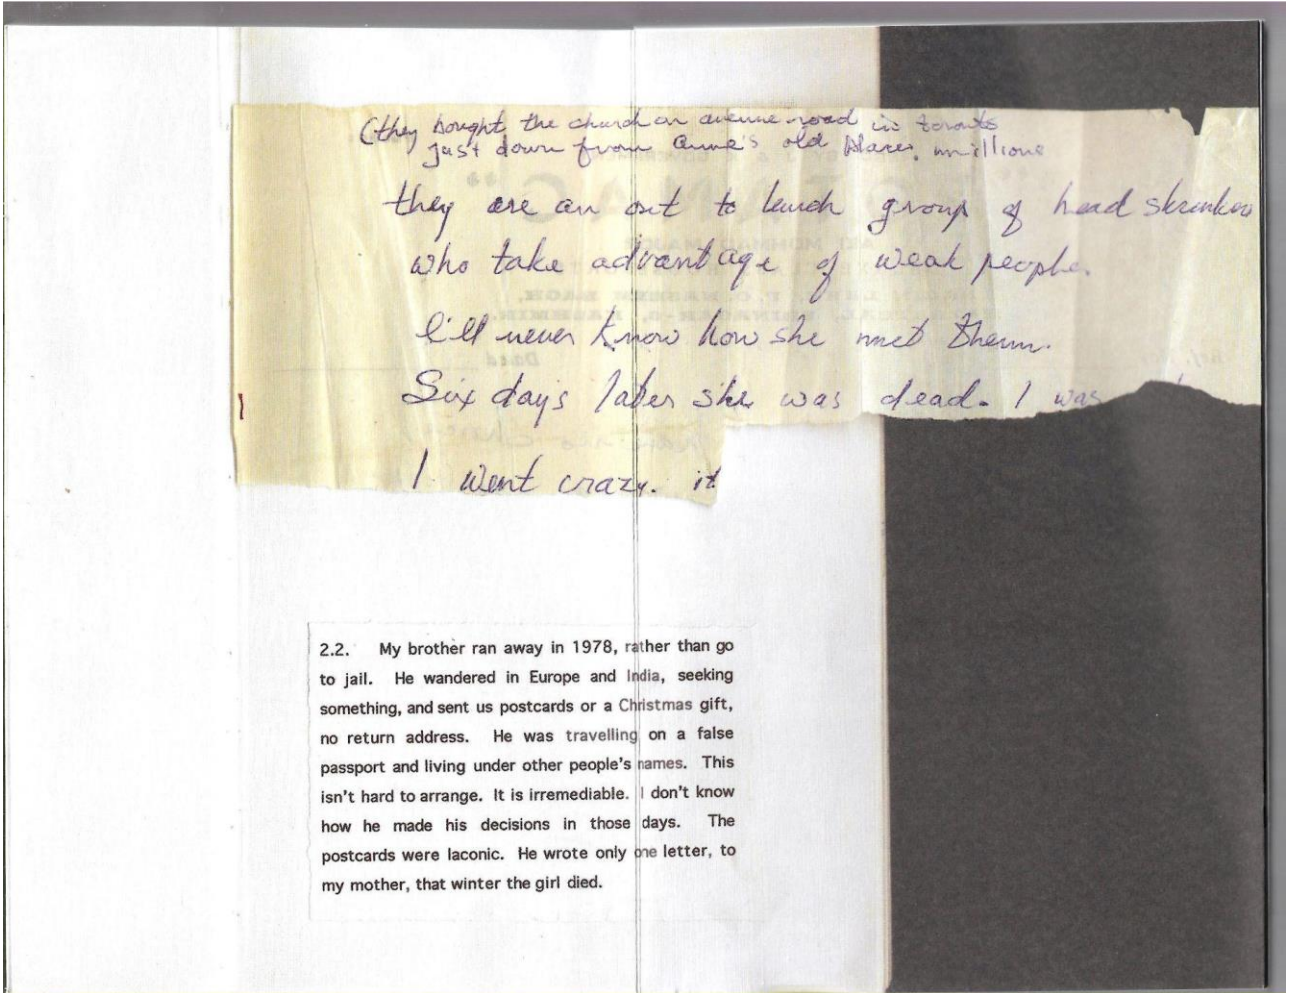 (they bought the church on avenue road in toronto
just down from anne's old place, millions
they are an out to lunch group of head shrinkers
who take advantage of weak people.
I'll never know how she met them.
Six days later she was dead. I was
I went crazy. it
2.2. My brother ran away in 1978, rather than go
to jail. He wandered in Europe and India, seeking
something, and sent us postcards or a Christmas gift,
no return address. He was travelling on a false
passport and living under other people's names. This
isn't hard to arrange. It is irremediable. I don't know
how he made his decisions in those days. The
postcards were laconic. He wrote only one letter, to
my mother, that winter the girl died.